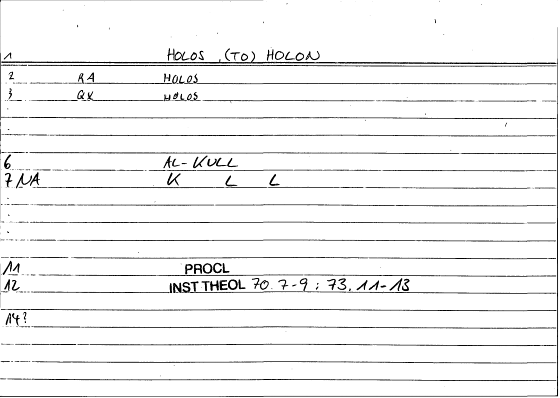 1 HOLOS, (TO) HOLON
2 RA HOLOS
3 QX HOLOS
6 AL-KULL
7 NA K L L
11 PROCL
12 INST THEOL 70. 7-9; 73. 11-13
14?